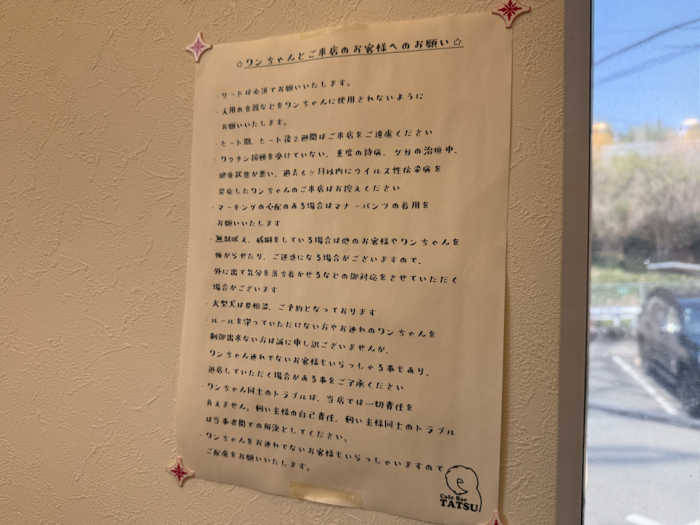 ☆ワンちゃんとご来店のお客様へのお願い☆
・リードは必須でお願いいたします。
・人用の食器などをワンちゃんに使用されないように
お願いいたします。
・ヒート期、ヒート後2週間はご来店をご遠慮ください
・ワクチン接種を受けていない、重度の持病、ケガの治療中、
健康状態が悪い、過去6ヶ月以内にウイルス性伝染病を
発症したワンちゃんのご来店はお控えください
・マーキングの心配のある場合はマナーパンツの着用を
お願いいたします
・無駄吠え、威嚇をしている場合は他のお客様やワンちゃんを
怖がらせたり、ご迷惑になる場合がございますので、
外に出て気分を落ち着かせるなどの御対応をさせていただく
場合がございます
・大型犬は要相談、ご予約となっております
・ルールを守っていただけない方やお連れのワンちゃんを
制御出来ない方は誠に申し訳ございませんが、
ワンちゃん連れでないお客様もいらっしゃる事もあり、
退店していただく場合がある事をご了承ください
・ワンちゃん同士のトラブルは、当店では一切責任を
負えません。飼い主様の自己責任、飼い主様同士のトラブル
は当事者間での解決としてください。
・ワンちゃんをお連れでないお客様もいらっしゃいますので
ご配慮をお願いいたします。
Cafe Bar
TATSU